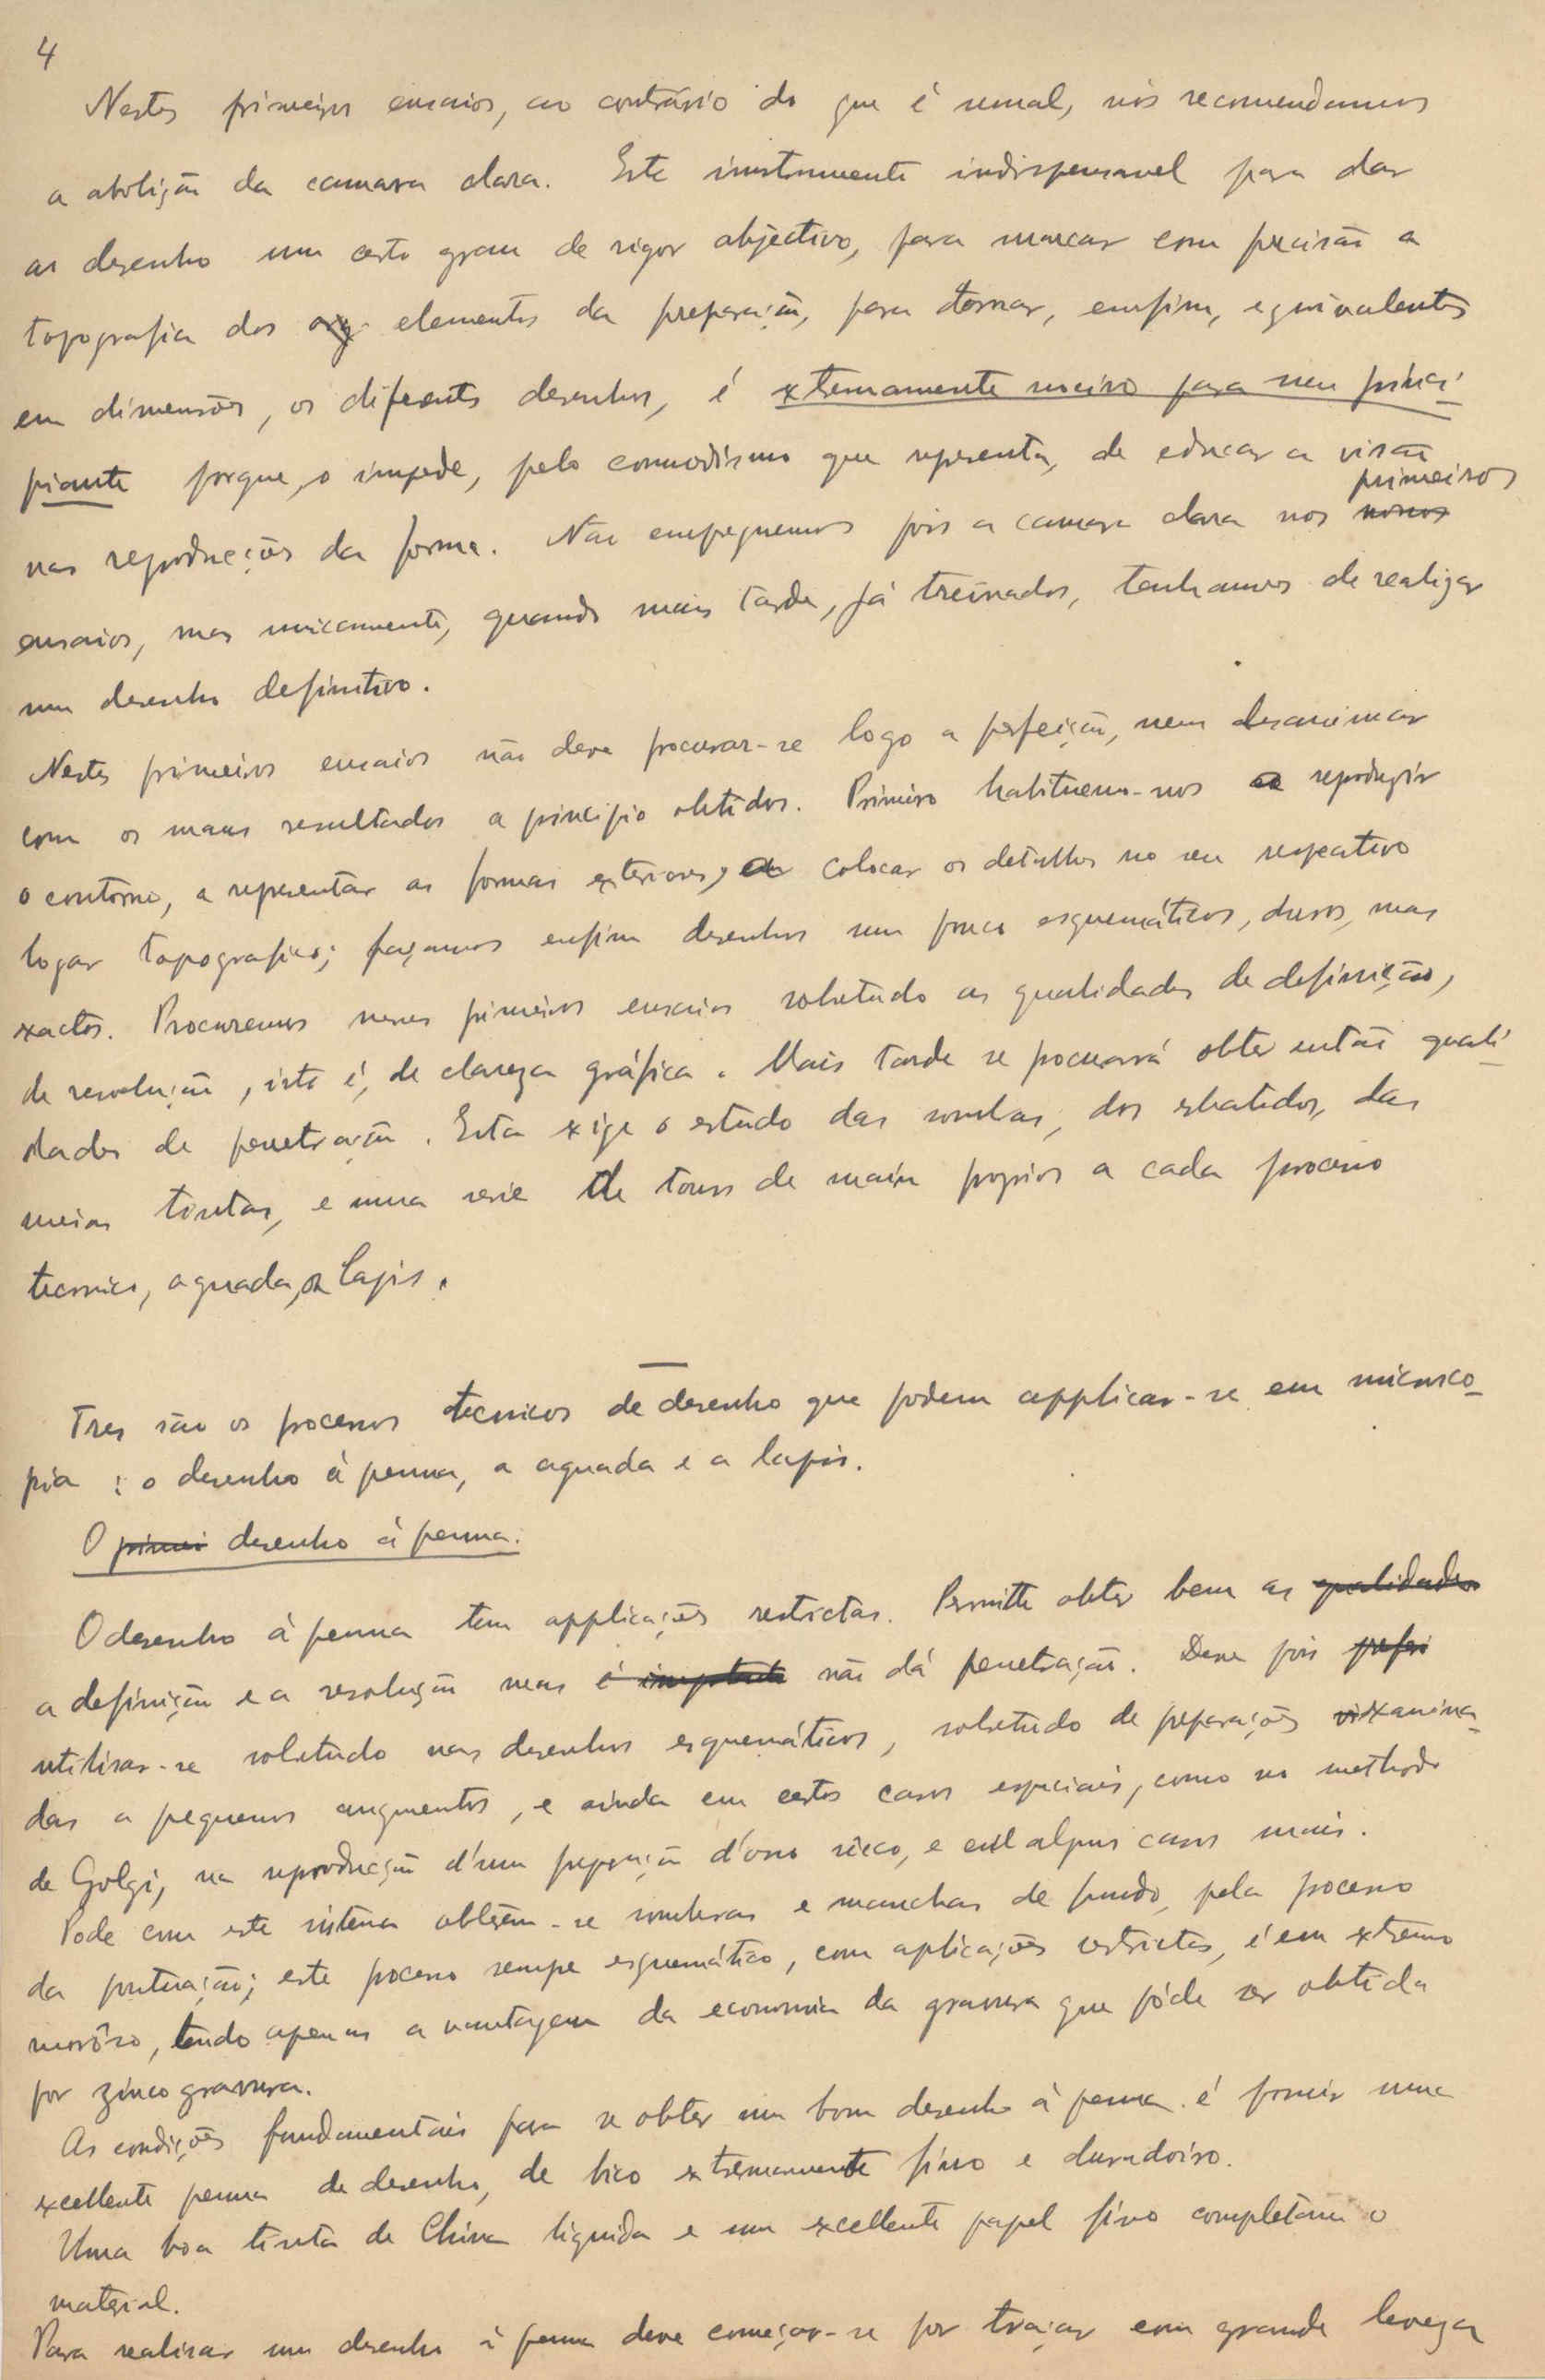 4
Nestes primeiros ensaios, ao contrário do que é usual, nós recomendamos
a abolição da camara clara. Este instrumento indispensavel para dar
ao desenho um certo grau de rigor objectivo, para marcar com precisão a
topografia dos elementos da preparação, para tornar, emfim, equivalentes
em dimensões, os diferentes desenhos, é extremamente nocivo para um princi-
piante porque o impede, pelo comodismo que representa, de educar a visão
nas reproduções da forma. Não empreguemos pois a camara clara nos novos primeiros
ensaios, mas unicamente, quando mais tarde, já treinados, tenhamos de realizar
um desenho definitivo.
Nestes primeiros ensaios não deve procurar-se logo a perfeição, nem desanimar
com os maus resultados a principio obtidos. Primeiro habituemo-nos a reproduzir
o contorno, a representar as formas exteriores, a colocar os detalhes no seu respectivo
logar topografico; façamos emfim desenhos um pouco esquemáticos, duros, mas
exactos. Procuremos nesses primeiros ensaios sobretudo as qualidades de definição,
de resolução, isto é, de clareza gráfica. Mais tarde se procurará obter então quali-
dades de penetração. Esta exige o estudo das sombras, dos esbatidos, das
meias tintas, e uma serie de tours de main proprios a cada processo
tecnico, aguada, ou lapis.
Tres são os processos tecnicos de desenho que podem applicar-se em microsco-
pia: o desenho á penna, a aguada e a lapis.
O primei desenho á penna.
O desenho á penna tem applicações restrictas. Permitte obter bem as qualidades
a definição e a resolução mas é não dá penetração. Deve pois prefer
utilisar-se sobretudo nos desenhos esquemáticos, sobretudo de preparações examina-
das a pequenos augmentos, e ainda em certos casos especiais, como no methodo
de Golgi, na reproducção d'uma preparação d'osso sêcco, e em alguns casos mais.
Pode com este sistema obterem-se sombras e manchas de fundo, pelo processo
da pontuação; este processo sempre esquemático, com aplicações restrictas, é em extremo
morôso, tendo apenas a vantagem da economia da gravura que póde ser obtida
por zincogravura.
As condições fundamentais para se obter um bom desenho á penna é possuir uma
excellente penna de desenho, de bico extremamente fino e duradoiro.
Uma boa tinta da China liquida e um excellente papel fino completam o
material.
Para realisar um desenho á penna deve começar-se por traçar com grande leveza